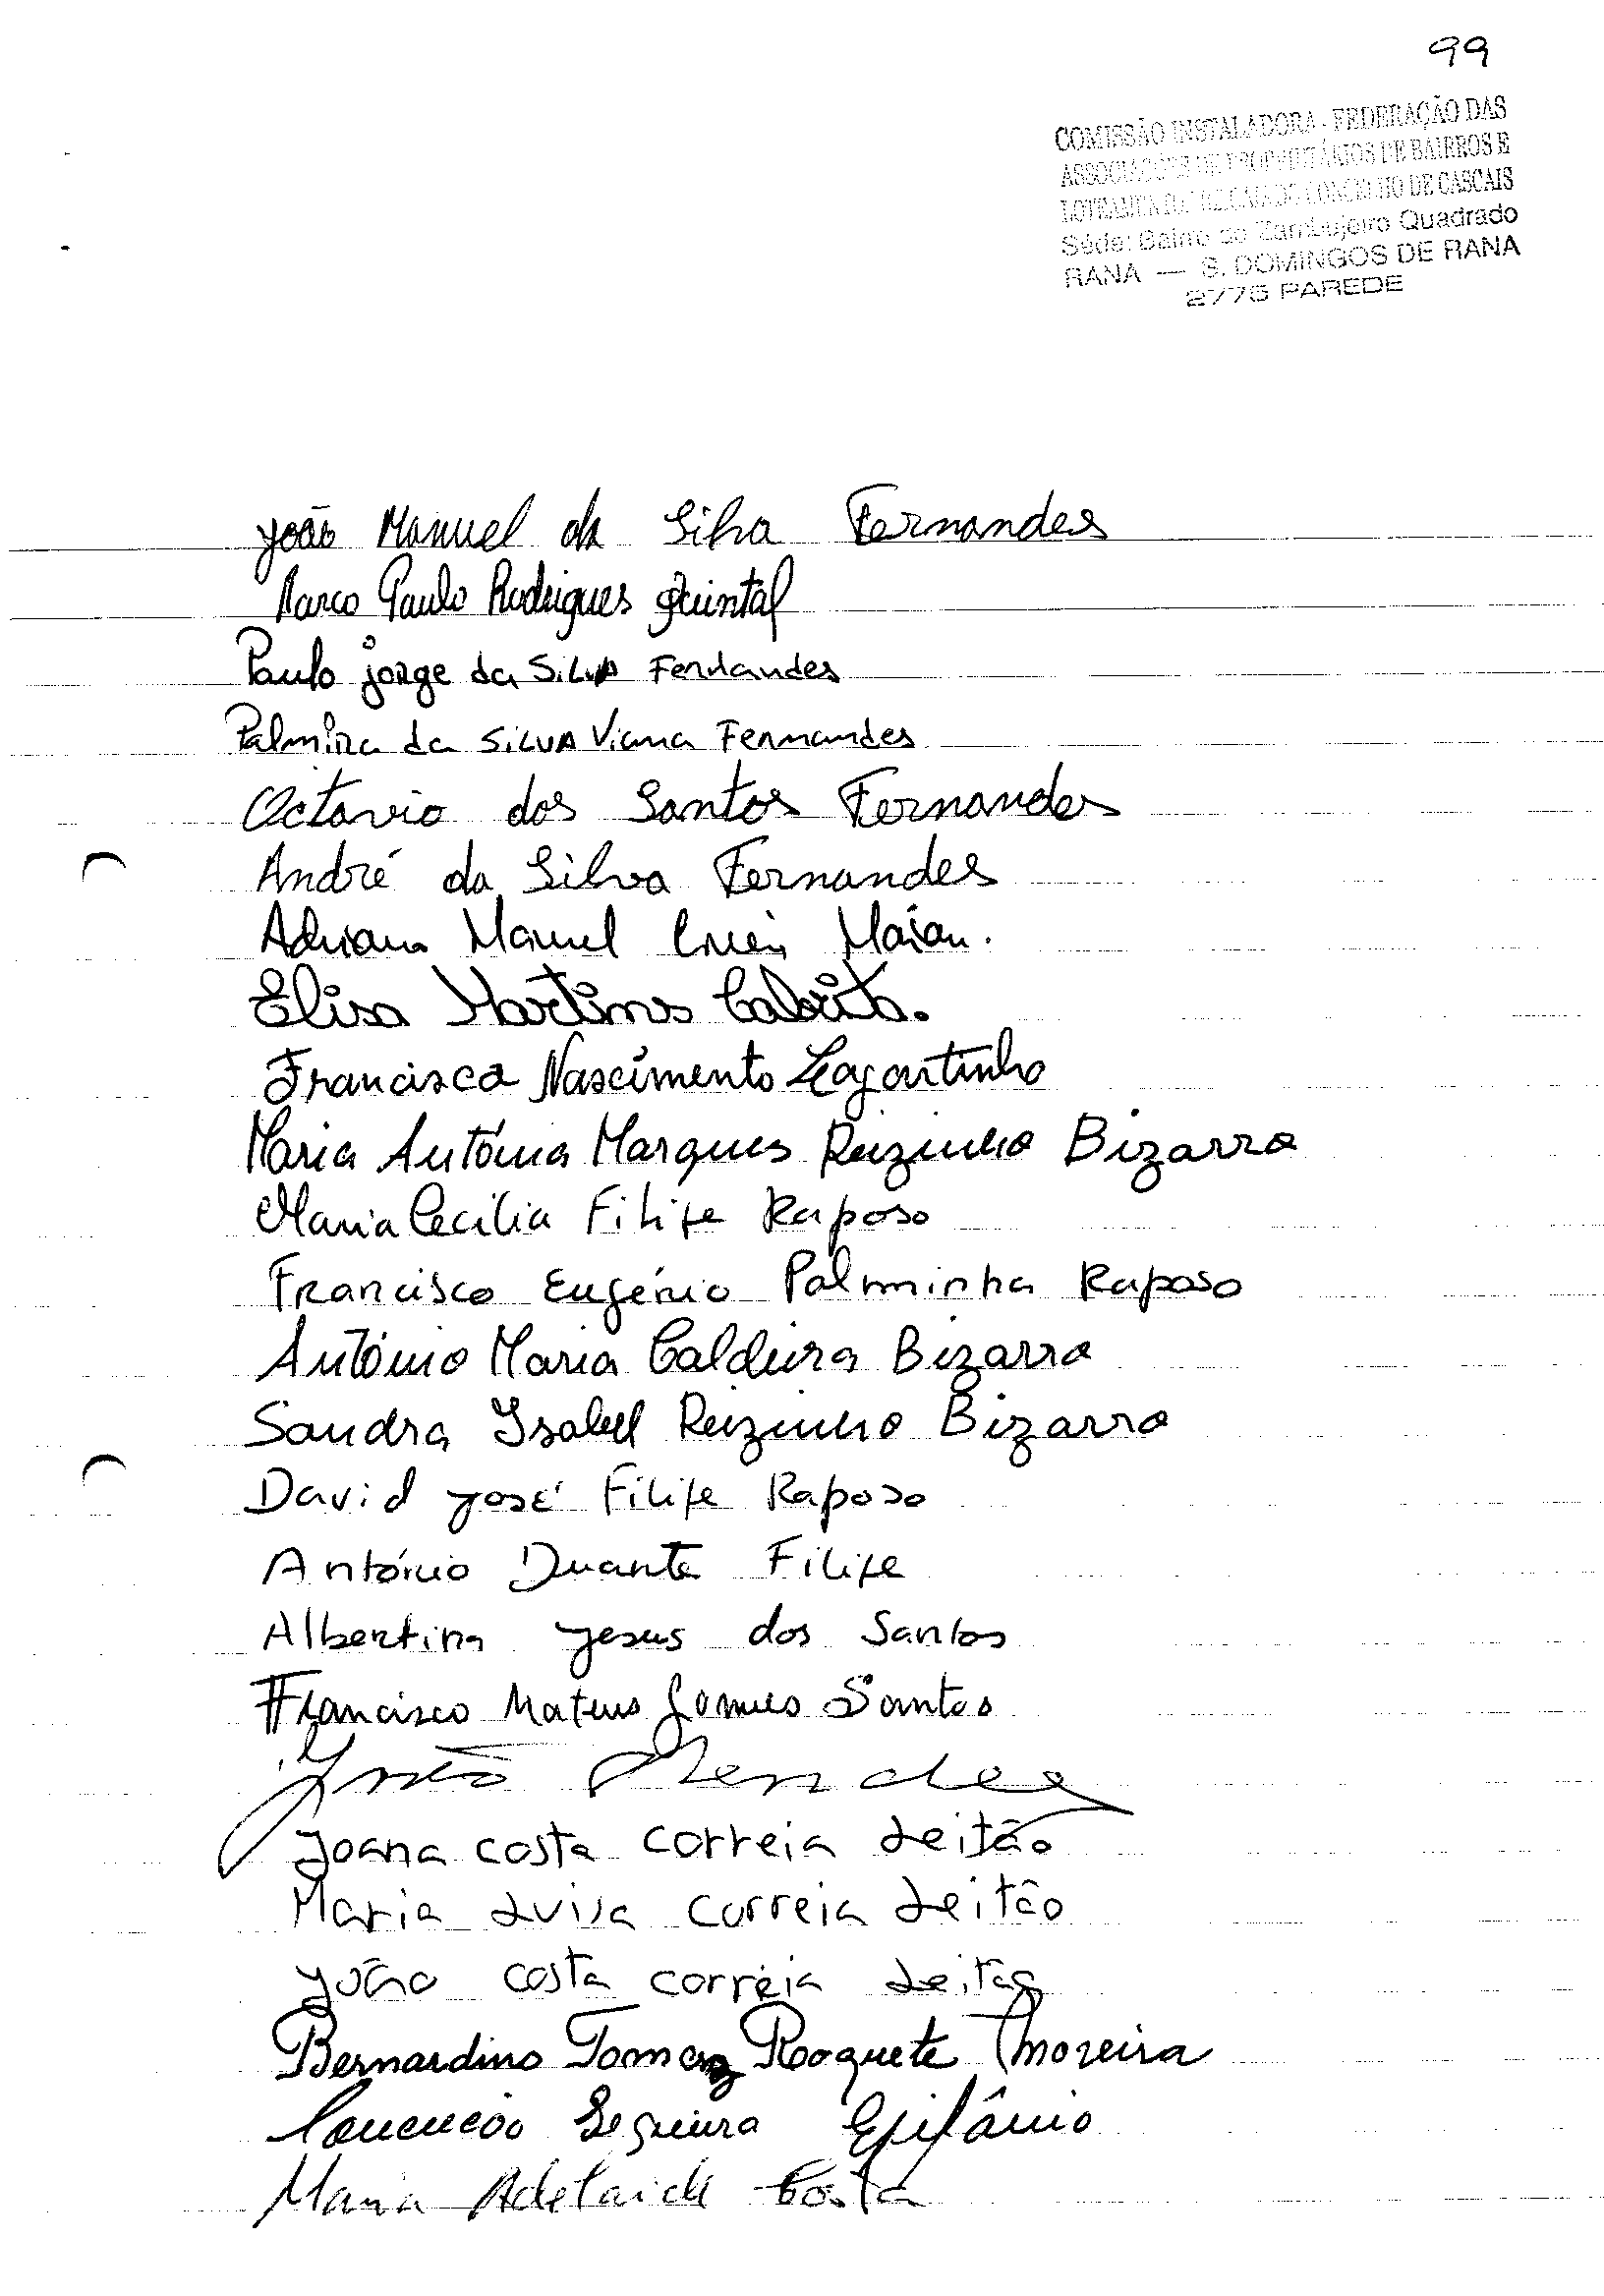 99
COMISSÃO INSTALADORA - FEDERAÇÃO DAS
ASSOCIAÇÕES DE PROPRIETÁRIOS DE BAIRROS E
CONCELHO DE CASCAIS
Séde: Bairro do Zambujeiro Quadrado
RANA — S. DOMINGOS DE RANA
2775 PAREDE
João Manuel da Silva Fernandes
Marco Paulo Rodrigues Quintal
Paulo Jorge da SILVA Fernandes
Palmira da SILVA Viana Fernandes
Octavio dos Santos Fernandes
André da Silva Fernandes
Manuel
Elisa Martins Cabrita.
Francisca Nascimento Lagartinho
Maria Antónia Marques Ruzinho Bizarro
Maria Cecília Filipe Raposo
Francisco Eugénio Palminha Raposo
António Maria Caldeira Bizarro
Sandra Isabel Ruzinho Bizarro
David José Filipe Raposo
António Duarte Filipe
Albertina Jesus dos Santos
Francisco Mateus Gomes Santos
João Mendes
Joana costa correia Leitão
Maria Luisa correia Leitão
João costa correia Leitão
Bernardino Tomaz Roquete Moreira
Sequeira Epifânio
Maria Adelaide Costa